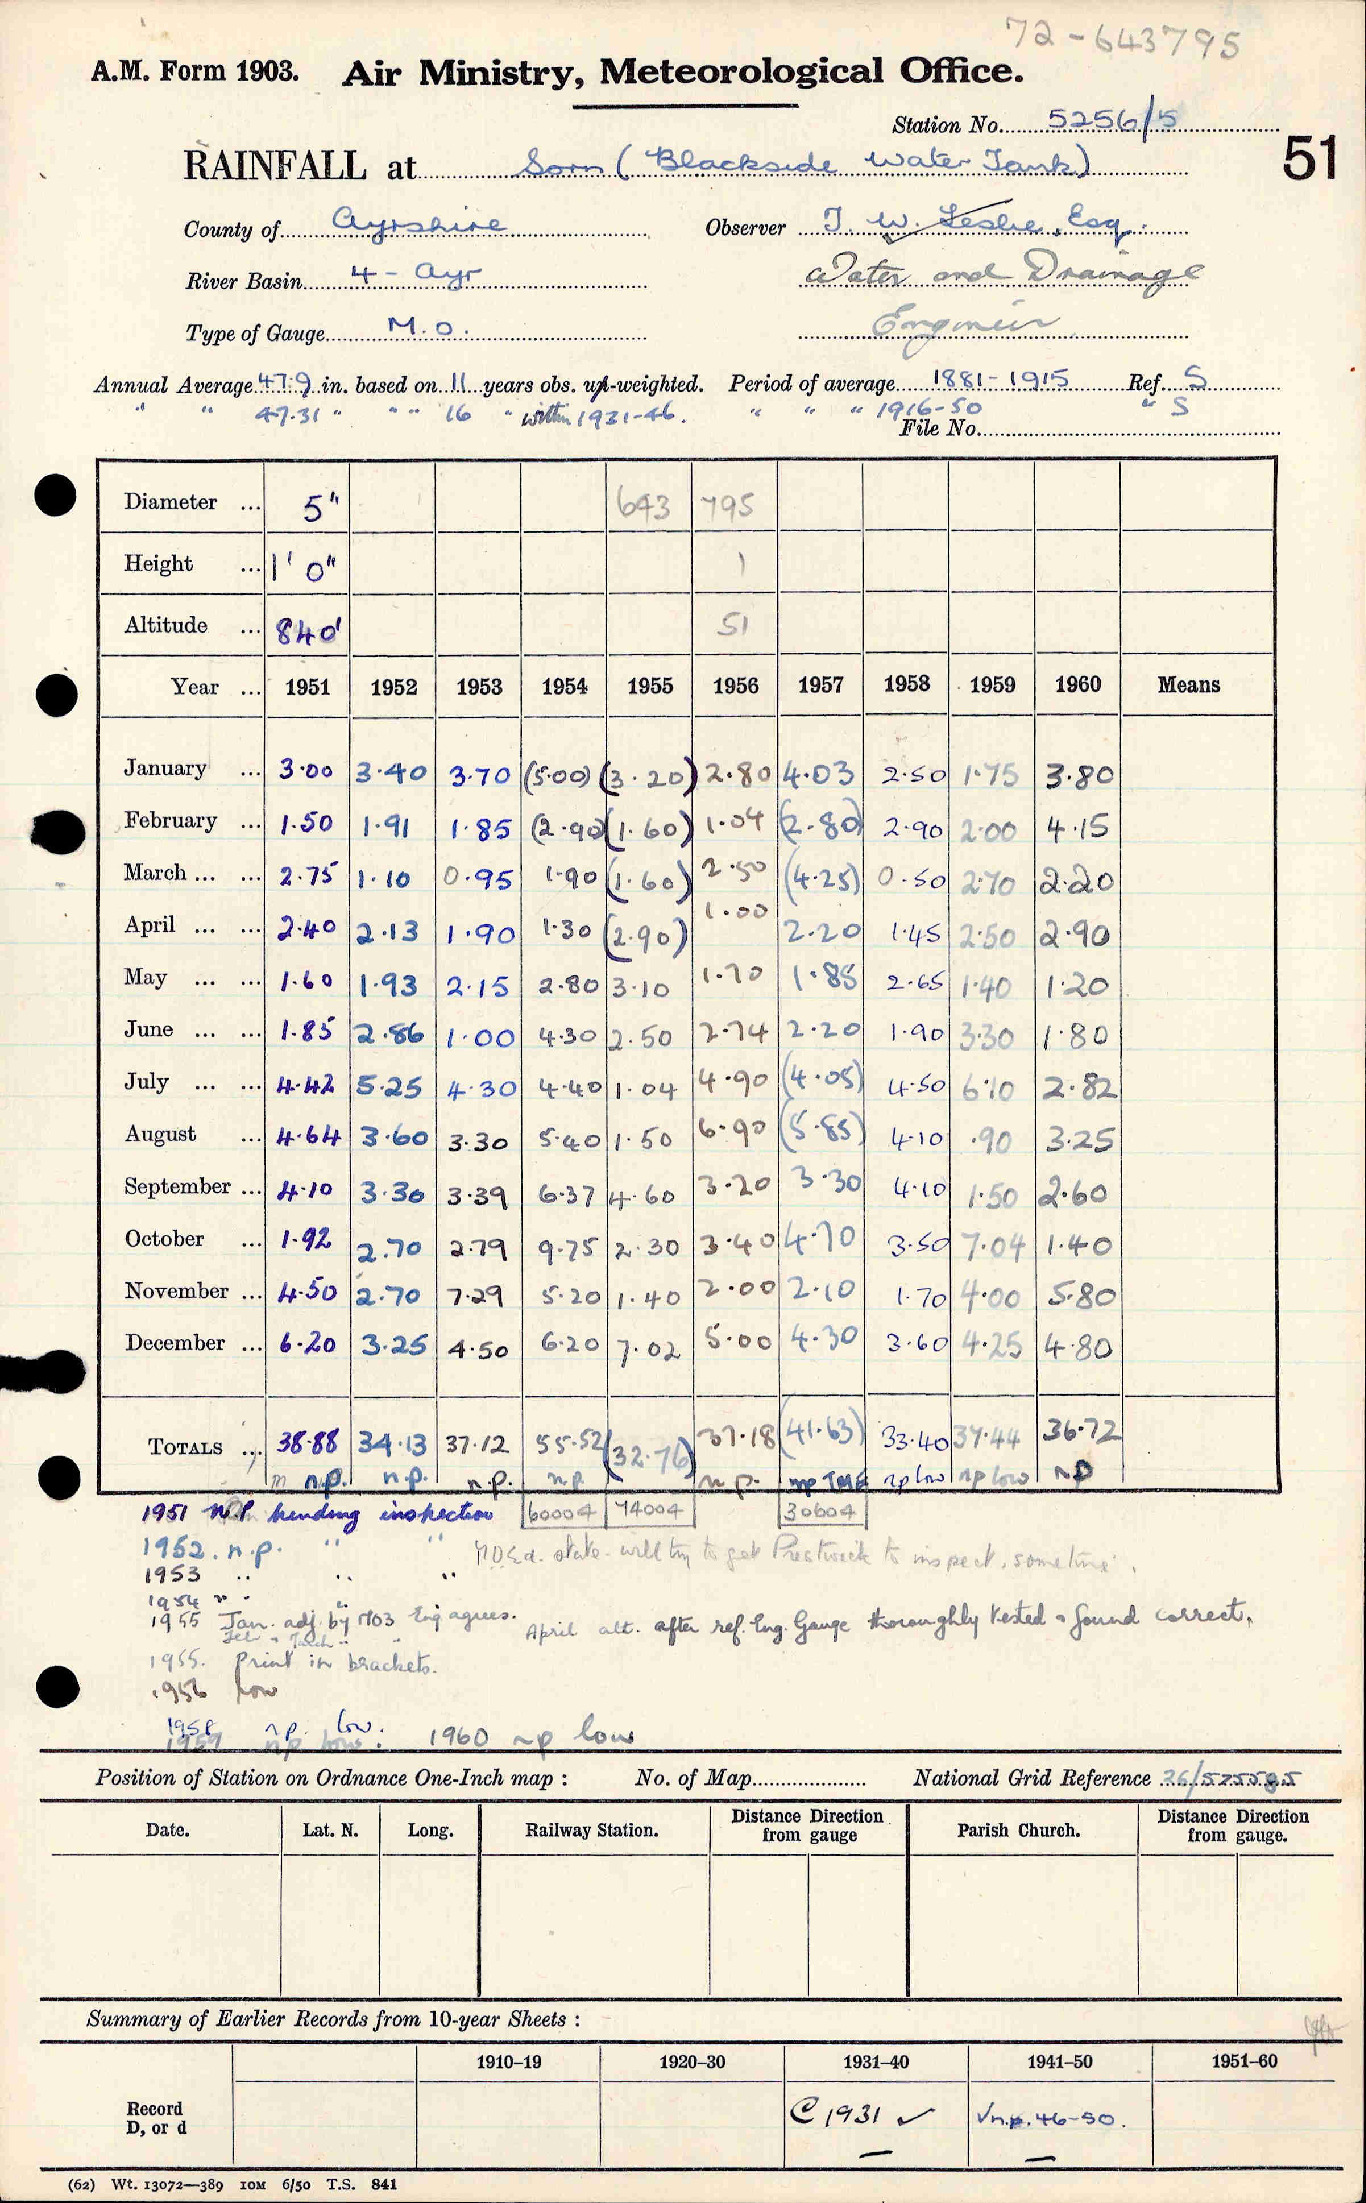 72-643795
A.M. Form 1903. Air Ministry, Meteorological Office.
Station No. 5256/5
51
RAINFALL at Sorn (Blackside Water Tank)
County of Ayrshire Observer J. W. Leslie, Esq.
River Basin 4 - Ayr Water and Drainage
Type of Gauge M.O. Engineer
Annual Average 47.9 in. based on 11 years obs. up-weighted. Period of average 1881-1915 Ref. S
" " 47.31 " " " 16 " within 1931-46. " " " 1916-50 " S
File No.
Diameter ... 5" 643 795
Height ... 1' 0" 1
Altitude ... 840' 51
Year ... 1951 1952 1953 1954 1955 1956 1957 1958 1959 1960 Means
January ... 3.00 3.40 3.70 (5.00) (3.20) 2.80 4.03 2.50 1.75 3.80
February ... 1.50 1.91 1.85 (2.90) (1.60) 1.04 (2.80) 2.90 2.00 4.15
March ... ... 2.75 1.10 0.95 1.90 (1.60) 2.50 (4.25) 0.50 2.70 2.20
April ... ... 2.40 2.13 1.90 1.30 (2.90) 1.00 2.20 1.45 2.50 2.90
May ... ... 1.60 1.93 2.15 2.80 3.10 1.70 1.85 2.65 1.40 1.20
June ... ... 1.85 2.86 1.00 4.30 2.50 2.74 2.20 1.90 3.30 1.80
July ... ... 4.42 5.25 4.30 4.40 1.04 4.90 (4.05) 4.50 6.10 2.82
August ... 4.64 3.60 3.30 5.40 1.50 6.90 (5.85) 4.10 .90 3.25
September ... 4.10 3.30 3.39 6.37 4.60 3.20 3.30 4.10 1.50 2.60
October ... 1.92 2.70 2.79 9.75 2.30 3.40 4.70 3.50 7.04 1.40
November ... 4.50 2.70 7.29 5.20 1.40 2.00 2.10 1.70 4.00 5.80
December ... 6.20 3.25 4.50 6.20 7.02 5.00 4.30 3.60 4.25 4.80
TOTALS ... 38.88 34.13 37.12 55.52 (32.76) 37.18 (41.63) 33.40 37.44 36.72
m n.p. n.p. n.p. n.p n.p. np np low np low np
1951 N.P. pending inspection 60004 74004 30604
1952. n.p. " " state will try to get Prestwick to inspect, sometime.
1953 " " "
1954 " " "
1955 Jan. adj. by M03 Eng agrees. April alt. after ref. Eng. Gauge thoroughly tested & found correct.
Feb & March " "
1955. Print in brackets.
1956 low
1958 n.p. low.
1959 np low. 1960 np low
Position of Station on Ordnance One-Inch map : No. of Map National Grid Reference 26/525585
Date. Lat. N. Long. Railway Station. Distance Direction from gauge Parish Church. Distance Direction from gauge.
Summary of Earlier Records from 10-year Sheets :
1910–19 1920–30 1931–40 1941–50 1951–60
Record
D, or d
C 1931 ✓ √n.p. 46-50.
(62) Wt. 13072—389 10M 6/50 T.S. 841